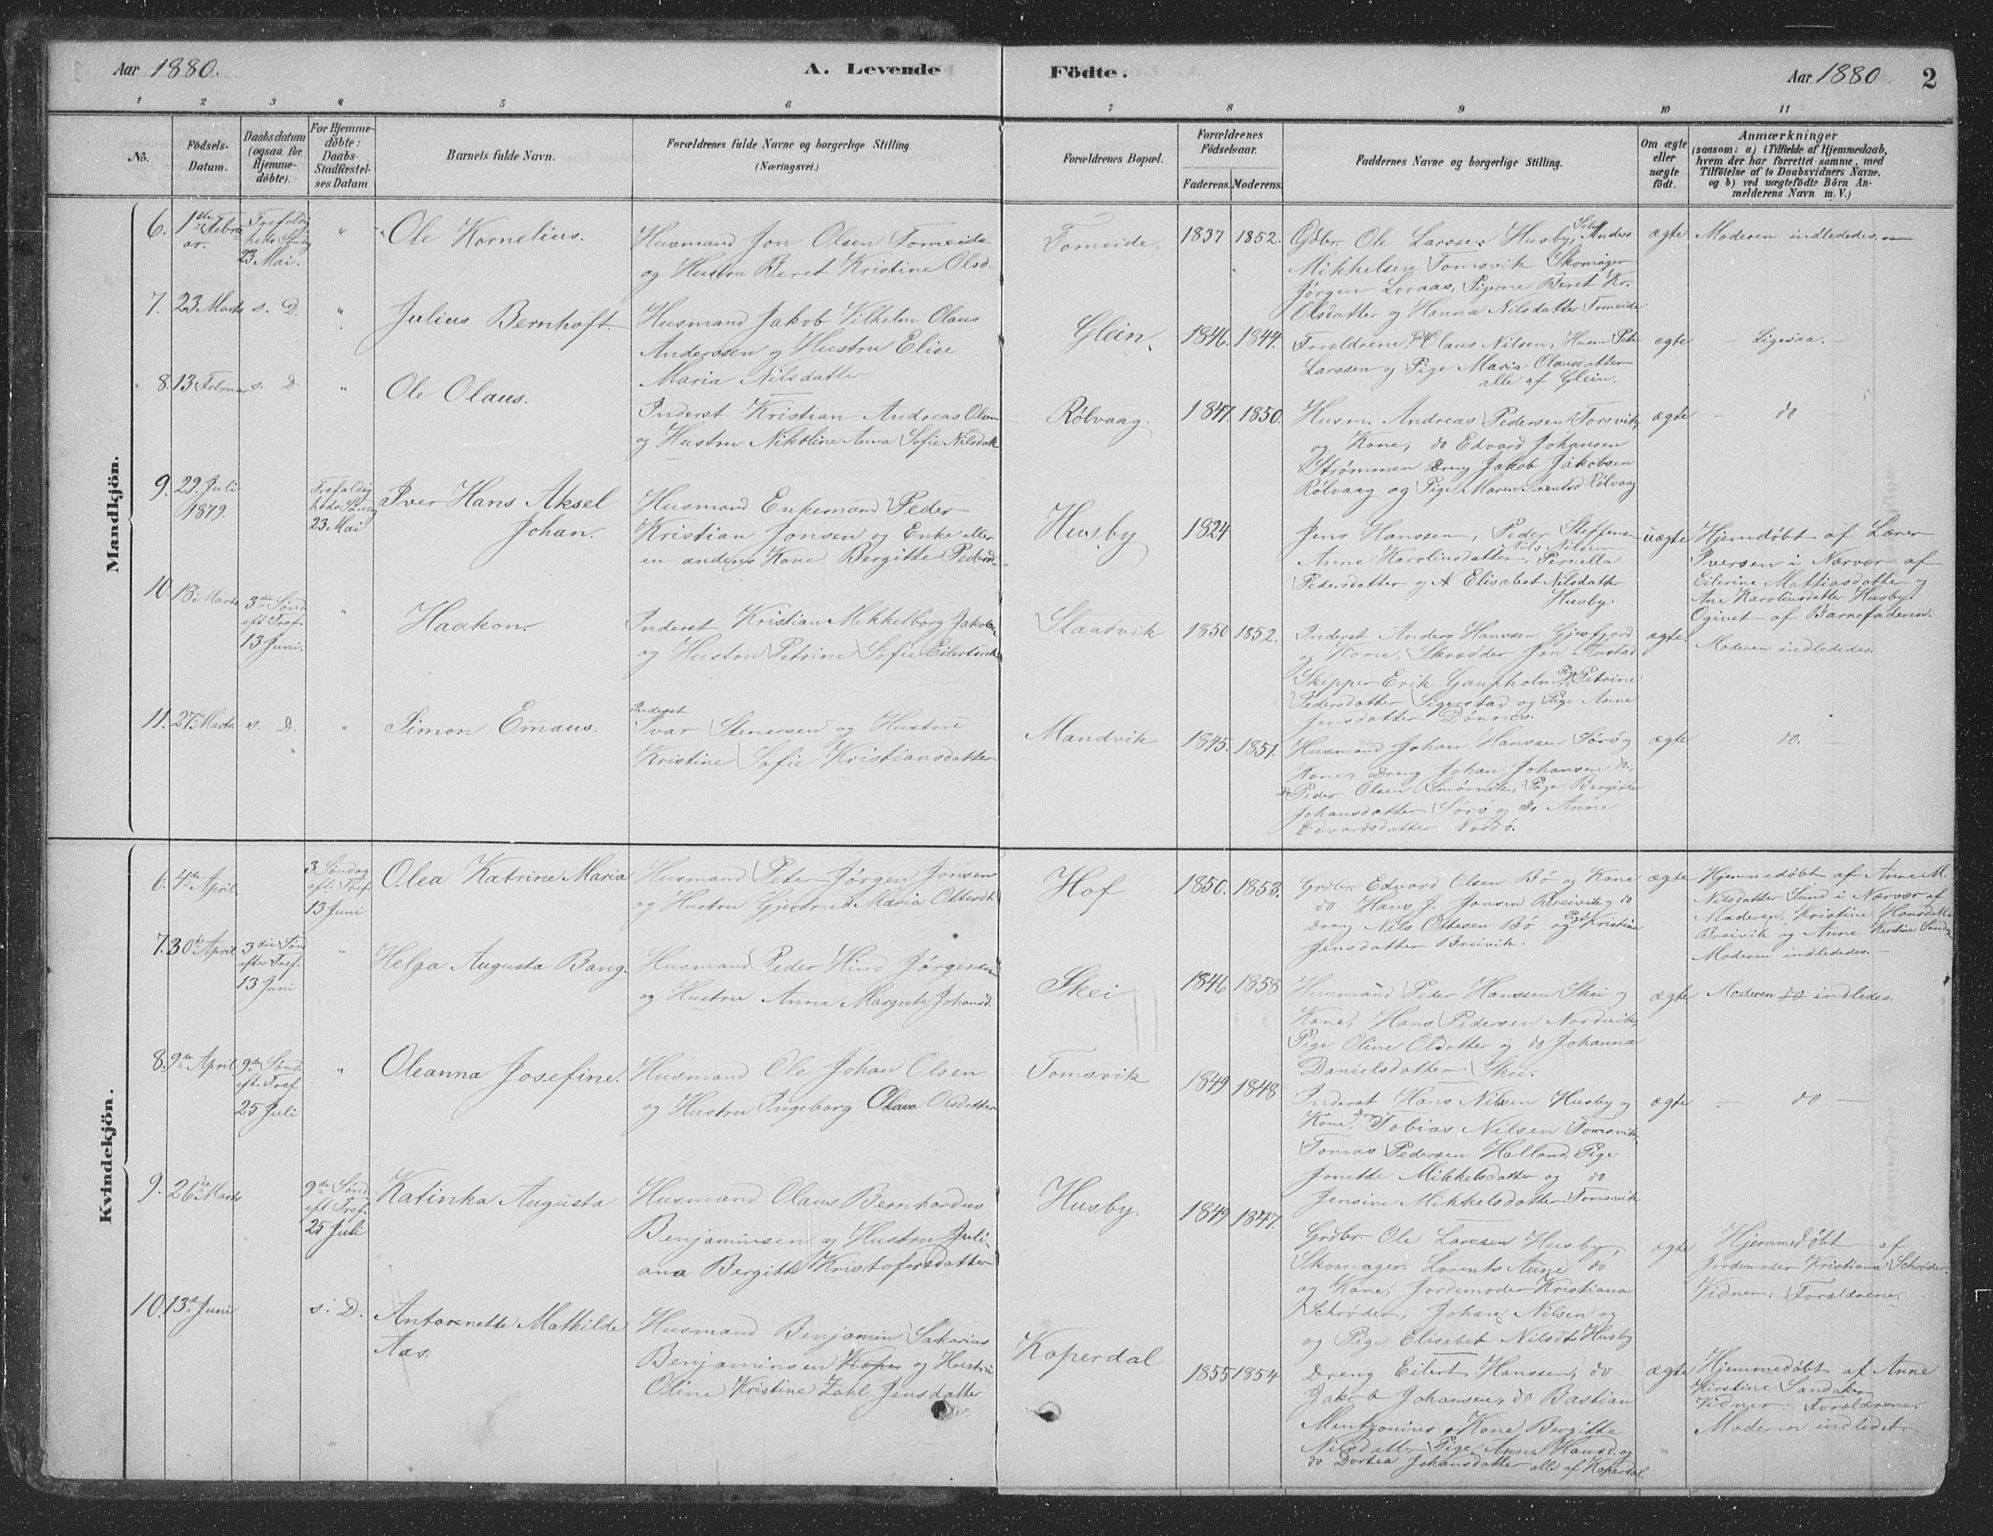 Aar 1880.
A. Levende
Födte.
Aar 1880
2
1 2 3 4 5 6 7 8 9 10 11
No.
Födsels-
Datum.
Daabsdatum
(ogsaa for
Hjemme-
döbte).
For Hjemme-
döbte:
Daabs-
Stadfæstel-
ses Datum
Barnets fulde Navn.
Forældrenes fulde Navne og borgerlige Stilling
(Næringsvei.)
Forældrenes Bopæl.
Forældrenes
Födselsaar.
Faderens. Moderens.
Faddernes Navne og borgerlige Stilling.
Om ægte
eller
uægte
födt.
Anmærkninger
(saasom: a) i Tilfælde af Hjemmedaab,
hvem der har forrettet samme, med
Tilföielse af to Daabsvidners Navne,
og b) ved uægtefödte Börn An-
melderens Navn m. V.)
Mandkjön.
6.
1ste Febru
ar.
Trefoldig
heds Sönd
23 Mai.
"
Ole Kornelius.
Husmand Jon Olsen Tomeide
og Hustru Beret Kristine Olsd.
Tomeide.
1837 1852.
Gdbr. Ole Larssen Husby, Anders
Mikkelsen Tomsvik Skomager
Jörgen Loraas, Pigerne Beret Kr.
Olsdatter og Hanna Nilsdatter Tomeide
ægte
Moderen indlededes.
7.
23 Marts
s. D.
"
Julius Bernhoft.
Husmand Jakob Vilhelm Olaus
Anderssen og Hustru Elise
Maria Nilsdatter
Glein.
1846. 1844.
Forældrene, Olaus Nilsen, Husm Peter
Larssen og Pige Maria Olausdatter
alle af Glein.
ægte
– Ligesaa. –
8.
13 Februar
s. D.
"
Ole Olaus.
Inderst Kristian Andreas Olsen
og Hustru Nikoline Anna Sofie Nilsdat
Rølvaag.
1847. 1850.
Husm. Andreas Pedersen Torsvik,
og Kone, do Edvard Johansen
Strømmen Dreng Jakob Jakobsen
Rølvaag og Pige Maren Rølvaag
ægte
– do –
9.
29 Juli
1879.
Trefoldig
heds Sönd
23 Mai
Iver Hans Aksel
Johan.
Husmand Enkemand Peder
Kristian Jonsen og Enke eller
en andens Kone Bergitte Pedersd.
Husby
1824
Jens Hanssen, Peder Steffensen
Anne Karolinsdatter, Nils Nilsen Pernella
Pedersdatter og Elisabet Nilsdatter
Husby.
uægte
Hjemdøbt af Lærer
Iversen i Nærvær af
Eilerine Mattiasdatter og
Ane Karolinsdatter Husby.
Ogivet af Barnefaderen.
10.
13 Marts
3die Sönd
eft Tref.
13 Juni.
"
Haakon.
Inderst Kristian Mikkelborg Jakobsen
og Hustru Petrine Sofie Eilertsdt
Slaadvik
1850 1852.
Inderst Anders Hanssen Gjesfjord
og Kone, Skrædder Jon
Skipper Erik Gaupholm, Pige Petrine
Pedersdatter Sigerstad og Pige Anne
Jensdatter Dönnes.
ægte
Moderen indlededes.
11.
27 Marts
s. D.
"
Simon Emaus.
Inderst
Ivar Stenersen og Hustru
Kristine Sofie Kristiansdatter
Mandvik
1845. 1851.
Husmand Johan Hanssen Sørø og
Kone, Dreng Johan Johansen do,
do Peder Olsen Smörvik, Pige Bergitte
Johansdatter Sørö og do Anne
Edvardsdatter Nordö.
ægte
do. –
Kvindekjön.
6.
4de April
3 Söndag
eft. Tref.
13 Juni
Olea Katrine Maria
Husmand Peter Jörgen Jonsen
og Hustru Gjertrud Maria Ottesdt
Hof
1850. 1853.
Grdbr. Edvard Olsen Bö og Kone
do Hans J. Jonsen Breivik og do
Dreng Nils Ottesen Bö og Pige Kristine
Jensdatter Breivik.
ægte
Hjemmedöbt af Anne M.
Nilsdatter Sund i Nærvær af
Moderen, Kristine Hansdatter
Breivik og Anne Kerstine Sund
Moderen indlededes. –
7.
30te April
3die Sönd
efter Tref
13 Juni
"
Helga Augusta Bang.
Husmand Peder Hind Jörgensen
og Hustru Anne Margrete Johansd.
Skei
1846 1858
Husmand Peder Hanssen Skei og
Kone, Hans Pedersen Nordvik,
Pige Oline Olsdatter og do Johanna
Danielsdatter Skei.
ægte
Moderen do indledes.
8.
9de April
9de Sönd.
eft. Tref
25 Juli
"
Oleanna Josefine.
Husmand Ole Johan Olsen
og Hustru Ingeborg Olava Olsdatter
Tomsvik
1849 1848
Inderst Hans Nilsen Husby og
Kone, Dreng Tobias Nilsen Tomsvik,
Tomas Pedersen Halland, Pige
Jonette Mikkelsdatter og do
Jensine Mikkelsdatter Tomsvik
ægte
– do –
9.
26de Marts
9de Sönd
eft Tref.
25 Juli
Katinka Augusta
Husmand Olaus Bernhardus
Benjaminsen og Hustru Juli
ana Bergitte Kristofersdatter
Husby.
1849 1847.
Grdbr Ole Larssen Husby,
Skomager Lorents Aune do
og Kone, Jordemoder Kristiana
Schrøder, Johan Nilsen og
og Pige Elisabet Nilsdt Husby
ægte
Hjemmedöbt af
Jordemoder Kristiana Schrøder.
Vidner: Forældrene.
10.
13de Juni
s. D.
Antonette Mathilde
Aas.
Husmand Benjamin Sakarias
Benjaminsen Koper og Hustru
Oline Kristine Zahl Jensdatter
Koperdal
1855 1854
Dreng Eilert Hanssen, do
Jakob Johansen, do Bastian
Mentzonius, Kone Bergitte
Nilsdatter Pige Anne Hansd. og
do Dortea Johansdatter alle af Koperdal
ægte
Hjemmedöbt af Anne
Kirstine Sandaker
Vidner: Forældrene
Moderen indledet